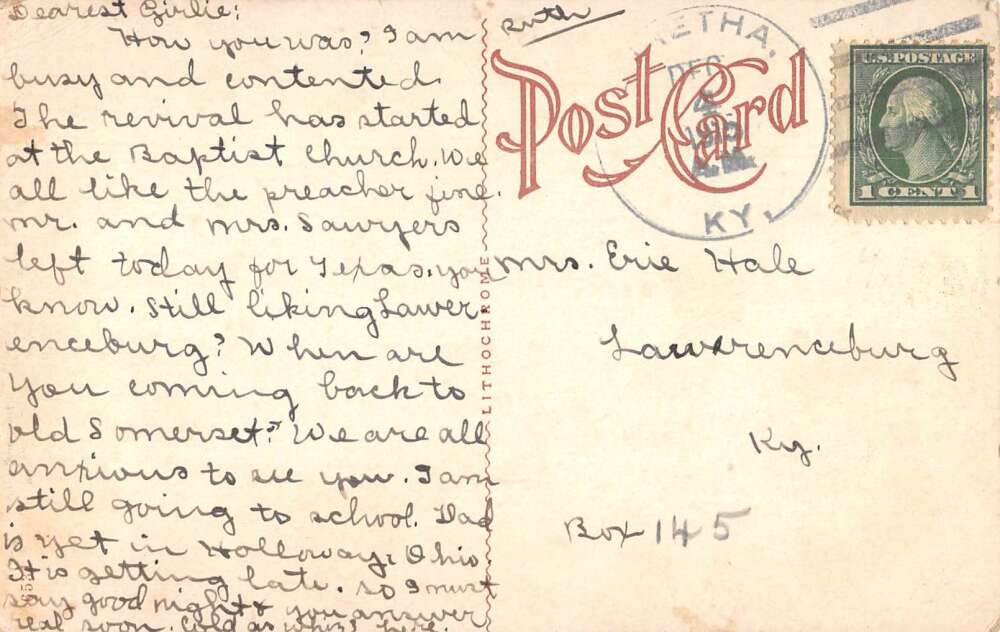 Dearest Girlie:
How you was? I am
busy and contented.
The revival has started
at the Baptist Church. We
all like the preacher fine.
mr. and mrs. Sawyers
left today for Texas, you
know. Still liking Lawer
enceburg? When are
you coming back to
old Somerset? We are all
anxious to see you. I am
still going to school. Dad
is yet in Holloway, Ohio
It is getting late. so I must
say good night & you answer
real soon. Cold as whiz! here.
LITHOCHROME
Ruth
Post Card
ETHA,
DEC
4
A.M.
KY.
U.S. POSTAGE
1 CENT 1
mrs. Erie Hale
Lawrenceburg
Ky.
Box 145